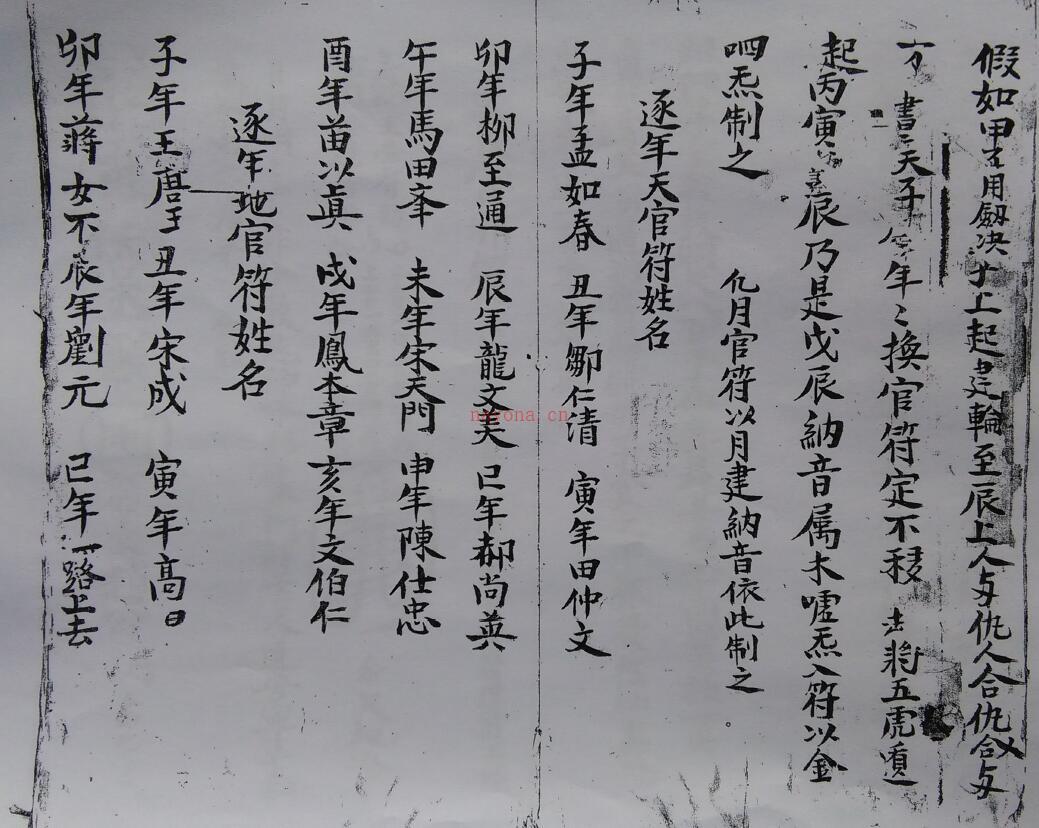 假如甲子用劔决子上起建輪至辰上人与仇人合仇合与
書天子年年〻換官符定不移 去將五虎遁
起丙寅 辰乃是戊辰納音属木嘘炁入符以金
呬炁制之 凡月官符以月建納音依此制之
逐年天官符姓名
子年孟如春 丑年鄒仁清 寅年田仲文
卯年柳至通 辰年龍文美 巳年郝尚英
午年馬田夆 未年宋天門 申年陳仕忠
酉年苗以眞 戌年鳳本章 亥年文伯仁
逐年地官符姓名
子年王唐王 丑年宋成 寅年高日
卯年蔣女不 辰年劉元 巳年一路上去
nayona.cn